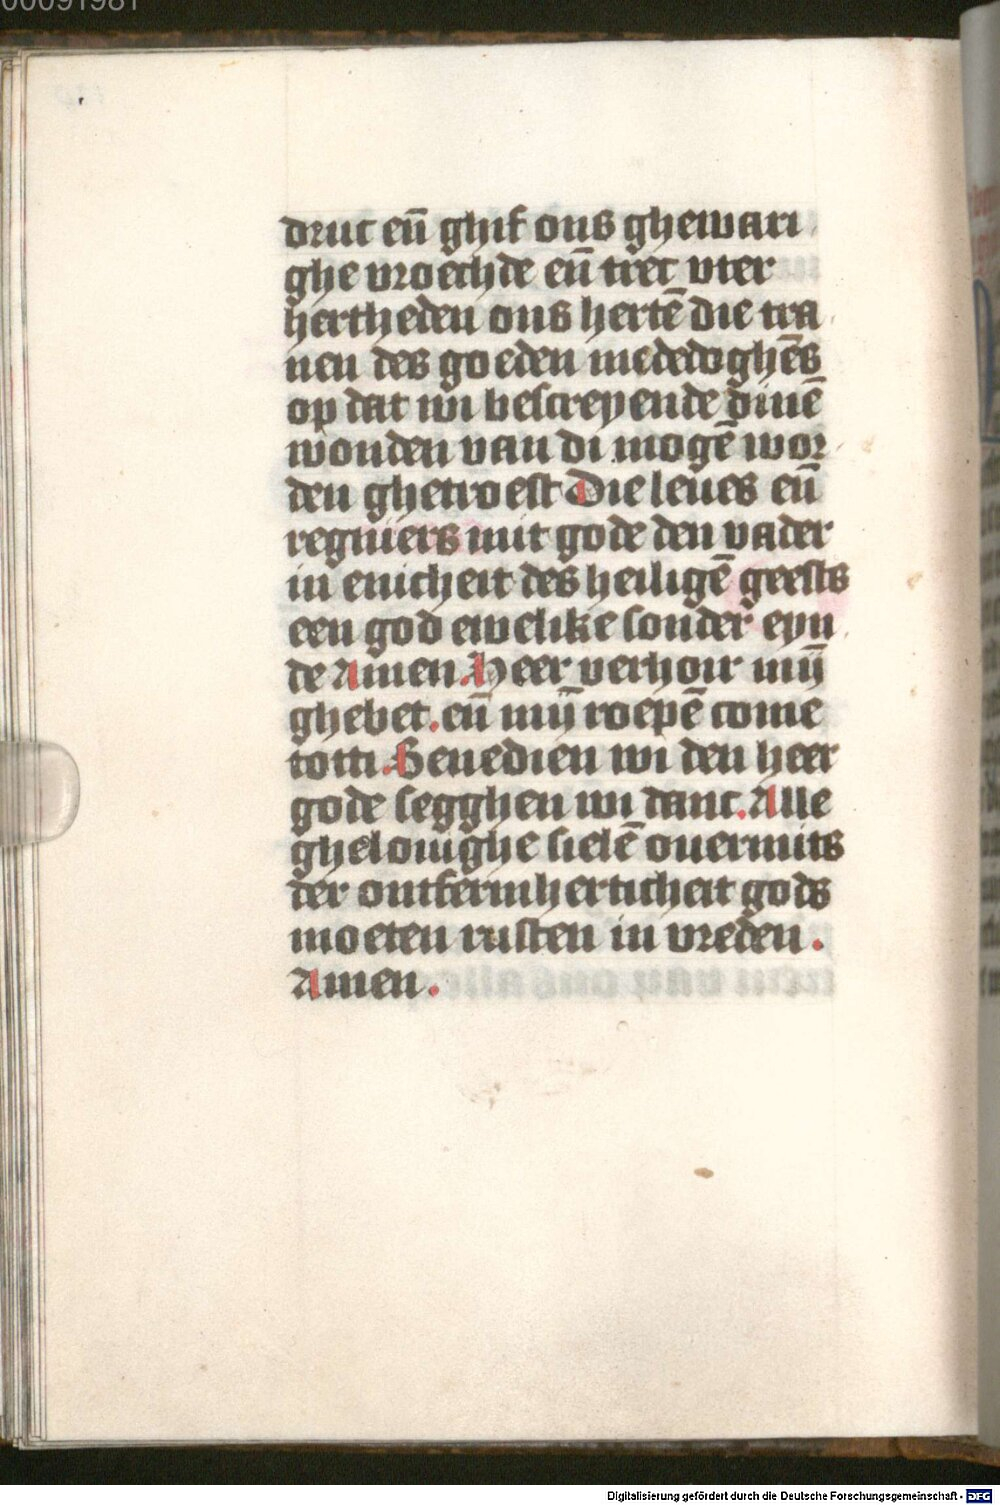 00091981
druc eñ ghif ons ghewari
ghe vroechde eñ trec vter
hertheden ons hertē die tra
nen des goeden mededoghēs
op dat wi bescreyende dinē
wonden van di mogē wor
den ghetroest Die leues eñ
regniers mit gode den vader
in enicheit des heiligē geests
een god ewelike sonder eyn
de Amen. Heer verhoir mijn̄
ghebet. eñ mijn̄ roepē come
totti. Benedien wi den heer
gode segghen wi danc. Alle
ghelouighe sielē ouermits
der ontfermherticheit gods
moeten rusten in vreden.
Amen.
Digitalisierung gefördert durch die Deutsche Forschungsgemeinschaft - DFG